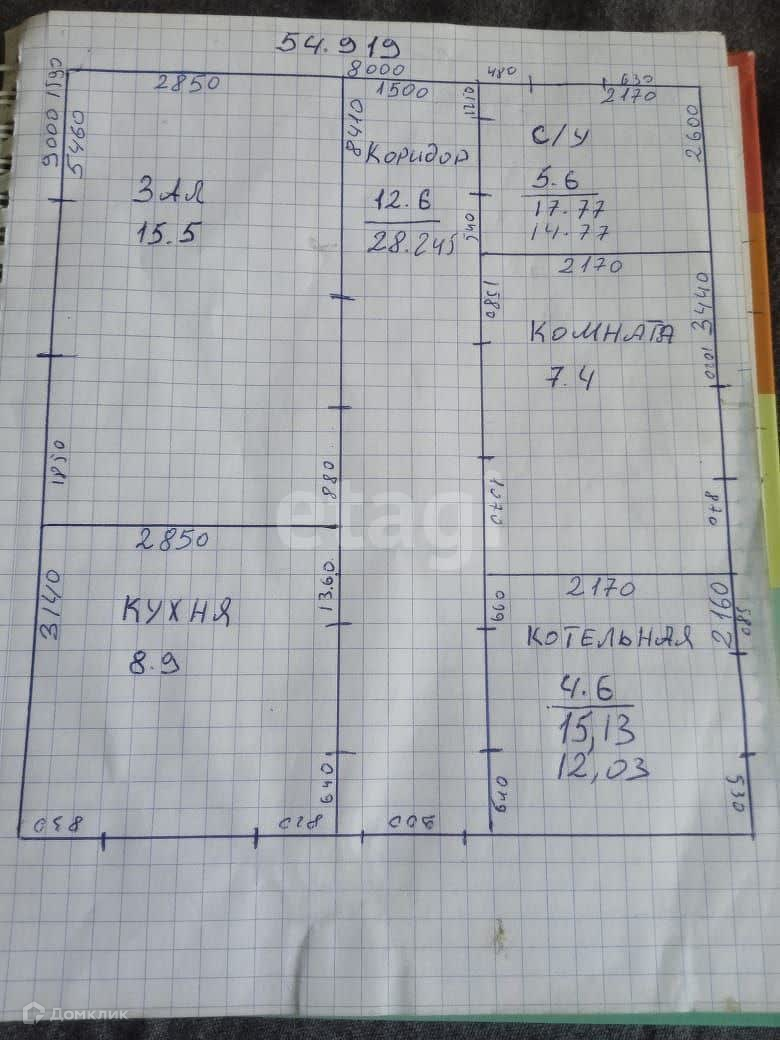 54.919
8000
2850
1500
480
630
2170
9000 1590
5460
8410
1210
2600
Коридор
12.6
28.245
С/У
5.6
17.77
14.77
ЗАЛ
15.5
540
2170
1580
3440
КОМНАТА
7.4
1020
1850
880
1070
870
2850
КУХНЯ
8.9
3140
13.60
660
2170
КОТЕЛЬНАЯ
4.6
15,13
12,03
2160
580
640
640
530
830
810
200
etagi
Домклик